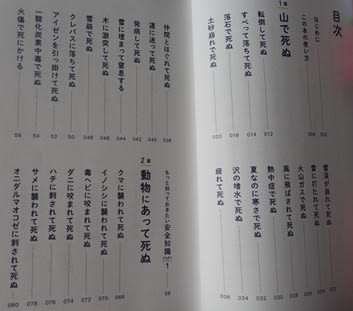 目次
はじめに
この本の使い方
1章 山で死ぬ
転倒して死ぬ 012
すべって落ちて死ぬ 014
落石で死ぬ 018
土砂崩れで死ぬ 020
雪渓が崩れて死ぬ
雷に打たれて死ぬ
火山ガスで死ぬ
風に飛ばされて死ぬ
熱中症で死ぬ 030
夏なのに寒さで死ぬ 032
沢の増水で死ぬ 034
疲れて死ぬ 036
仲間とはぐれて死ぬ 038
道に迷って死ぬ 040
発病して死ぬ 042
雪に埋まって窒息する 044
木に激突して死ぬ 046
雪崩で死ぬ 048
クレバスに落ちて死ぬ 50
アイゼンを引っ掛けて死ぬ 52
一酸化炭素中毒で死ぬ 54
火傷で死にかける 56
もっと知っておきたい安全知識 PART 1 58
2章 動物にあって死ぬ
クマに襲われて死ぬ 066
イノシシに襲われて死ぬ 070
毒ヘビに咬まれて死ぬ 072
ダニに咬まれて死ぬ 074
ハチに刺されて死ぬ 076
サメに襲われて死ぬ 078
オニダルマオコゼに刺されて死ぬ 080